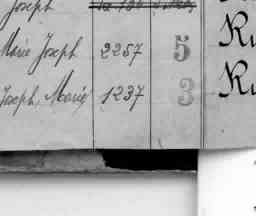 Joseph
Marie Joseph 2257 5 Ku
Joseph, Marie 1237 3 Ku